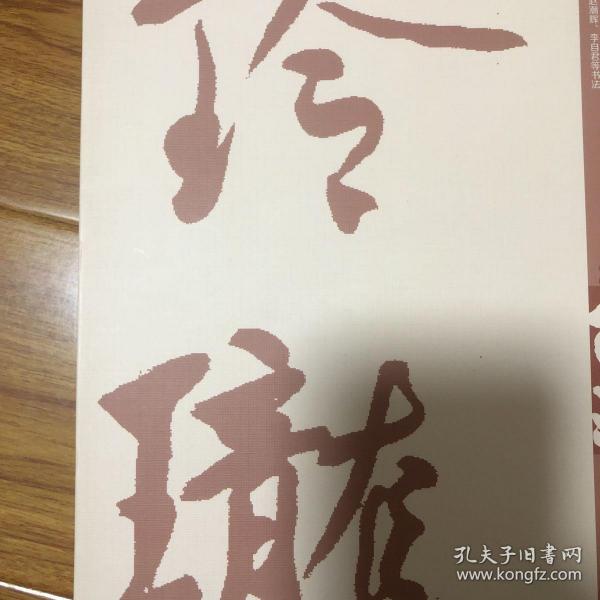 玲
瓏
赵潮辉、李自君等书法
孔夫子旧书网
www.kongfz.com